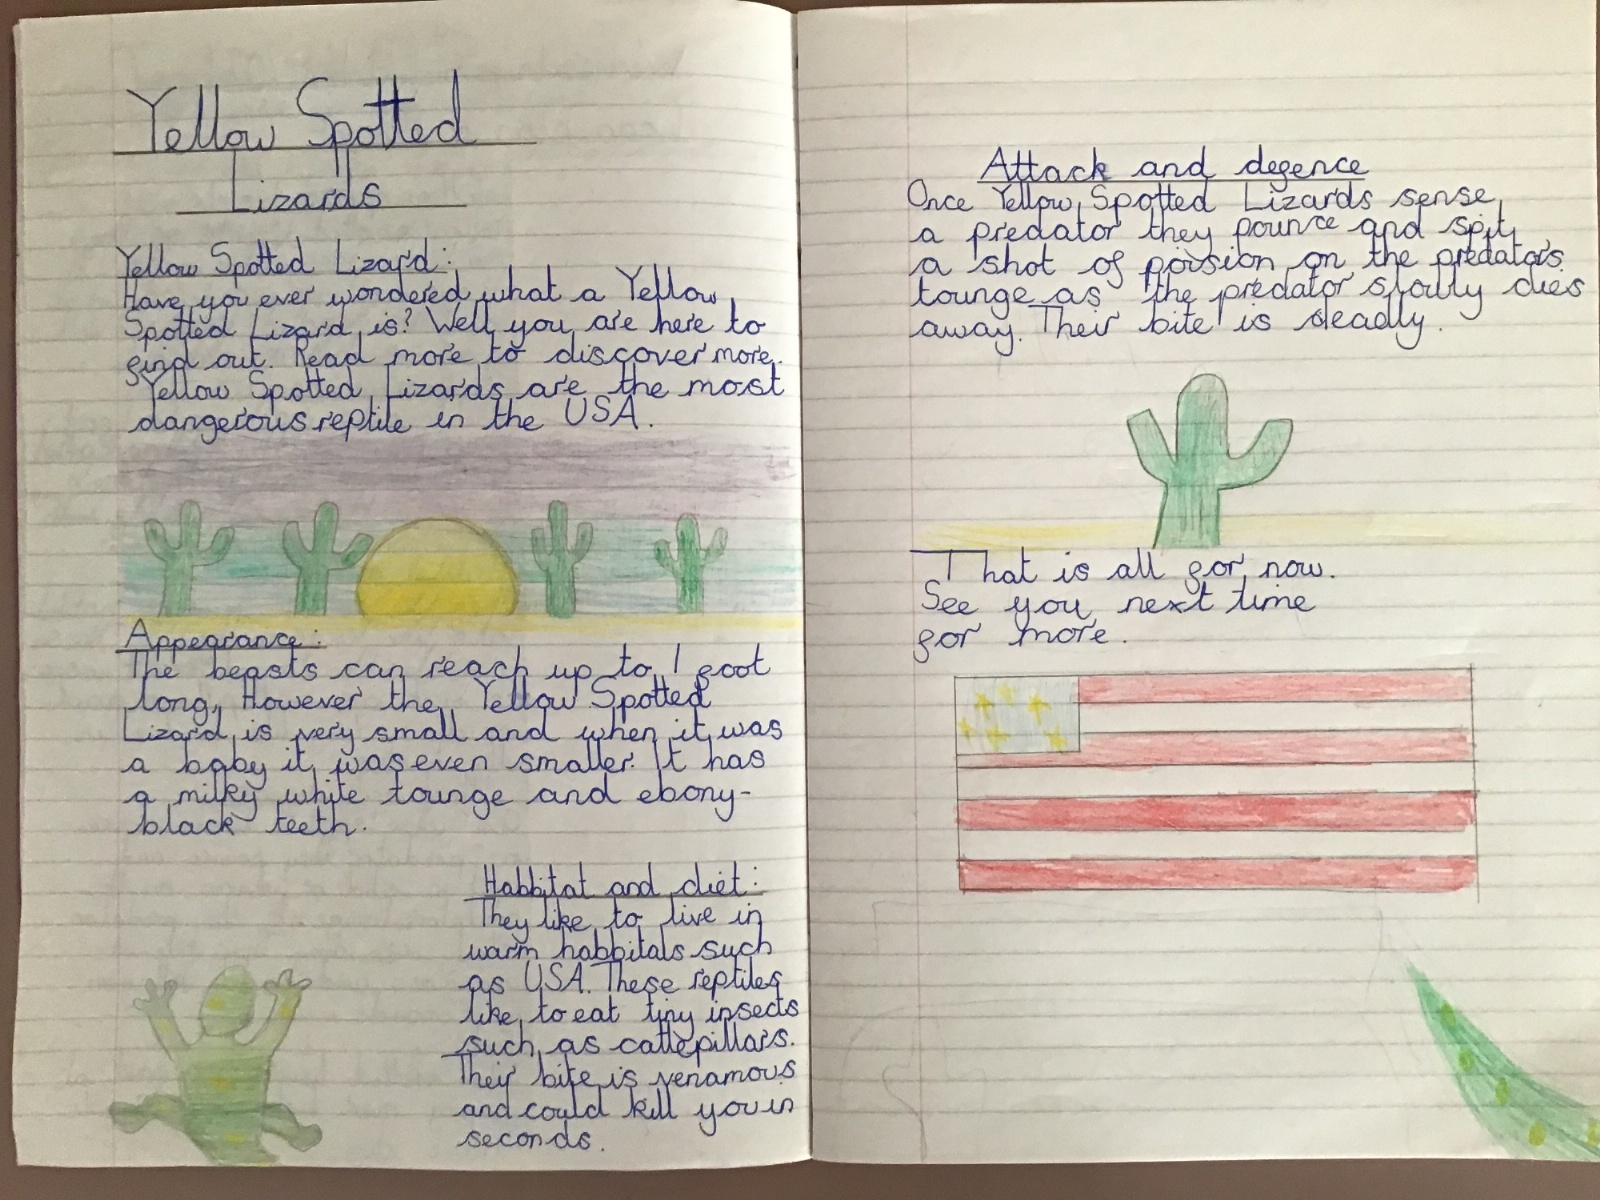 Yellow Spotted
Lizards
Yellow Spotted Lizard:
Have you ever wondered what a Yellow
Spotted Lizard is? Well you are here to
find out. Read more to discover more.
Yellow Spotted Lizards are the most
dangerous reptile in the USA.
Appearance:
The beasts can reach up to 1 foot
long. However the Yellow Spotted
Lizard is very small and when it was
a baby it was even smaller. It has
a milky white tounge and ebony-
black teeth.
Habbitat and diet:
They like to live in
warm habbitats such
as USA. These reptiles
like to eat tiny insects
such as cattepillars.
Their bite is venamous
and could kill you in
seconds.
Attack and defence
Once Yellow Spotted Lizards sense
a predator they pounce and spit
a shot of poision on the predators
tounge as the predator slowly dies
away. Their bite is deadly.
That is all for now.
See you next time
for more.